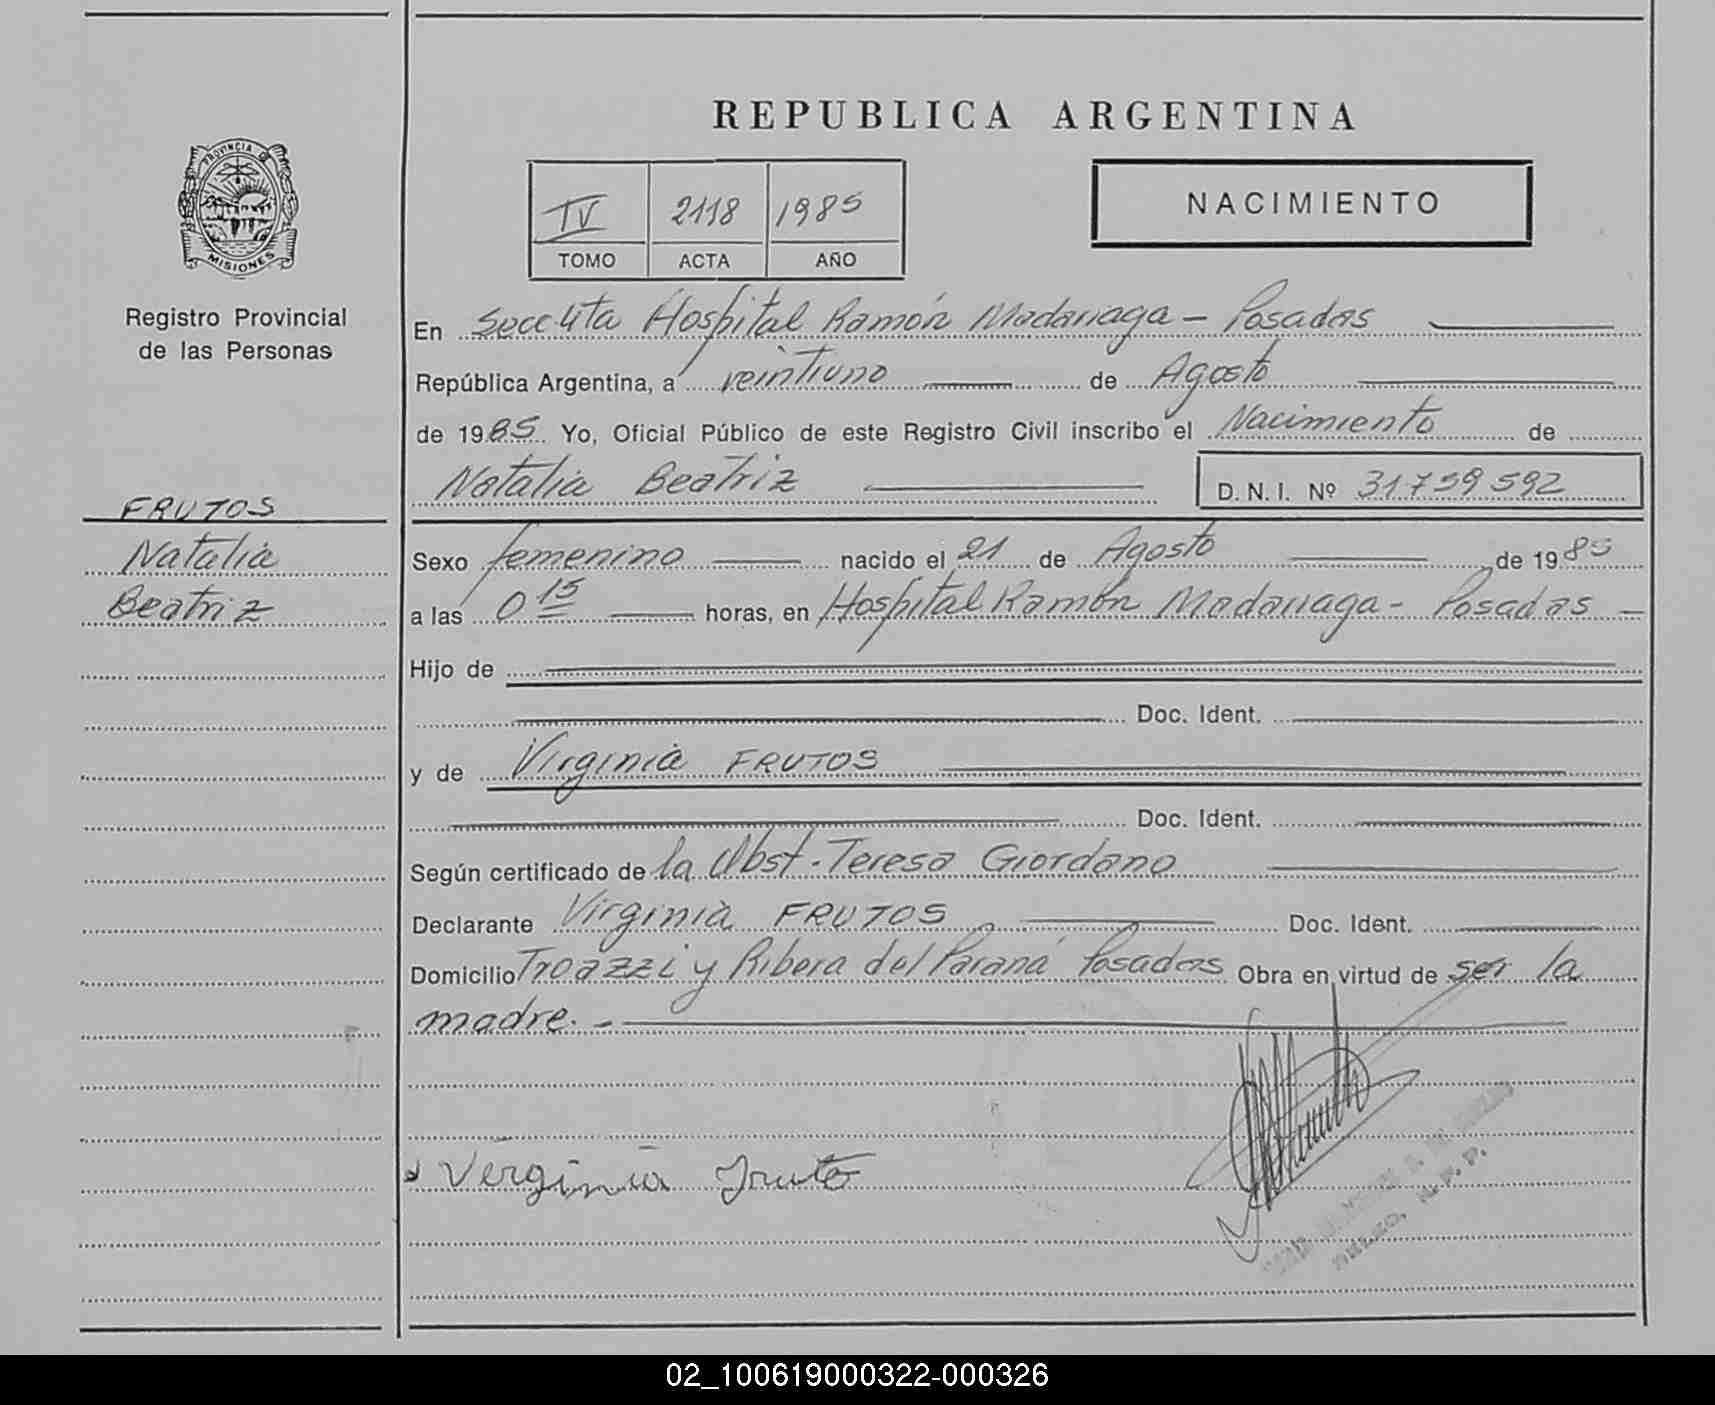 REPUBLICA ARGENTINA
PROVINCIA DE
MISIONES
Registro Provincial
de las Personas
IV 2118 1985
TOMO ACTA AÑO
NACIMIENTO
En Secc 4ta Hospital Ramón Madariaga - Posadas
República Argentina, a veintiuno de Agosto
de 1985 Yo, Oficial Público de este Registro Civil inscribo el Nacimiento de
Natalia Beatriz D. N. I. Nº 31759592
FRUTOS
Natalia
Beatriz
Sexo femenino nacido el 21 de Agosto de 1985
a las 0 15 horas, en Hospital Ramón Madariaga - Posadas -
Hijo de
Doc. Ident.
y de Virginia FRUTOS
Doc. Ident.
Según certificado de la Obst. Teresa Giordano
Declarante Virginia FRUTOS Doc. Ident.
Domicilio Troazzi y Ribera del Paraná Posadas Obra en virtud de ser la
madre. -
Verginia Fruto
02_100619000322-000326